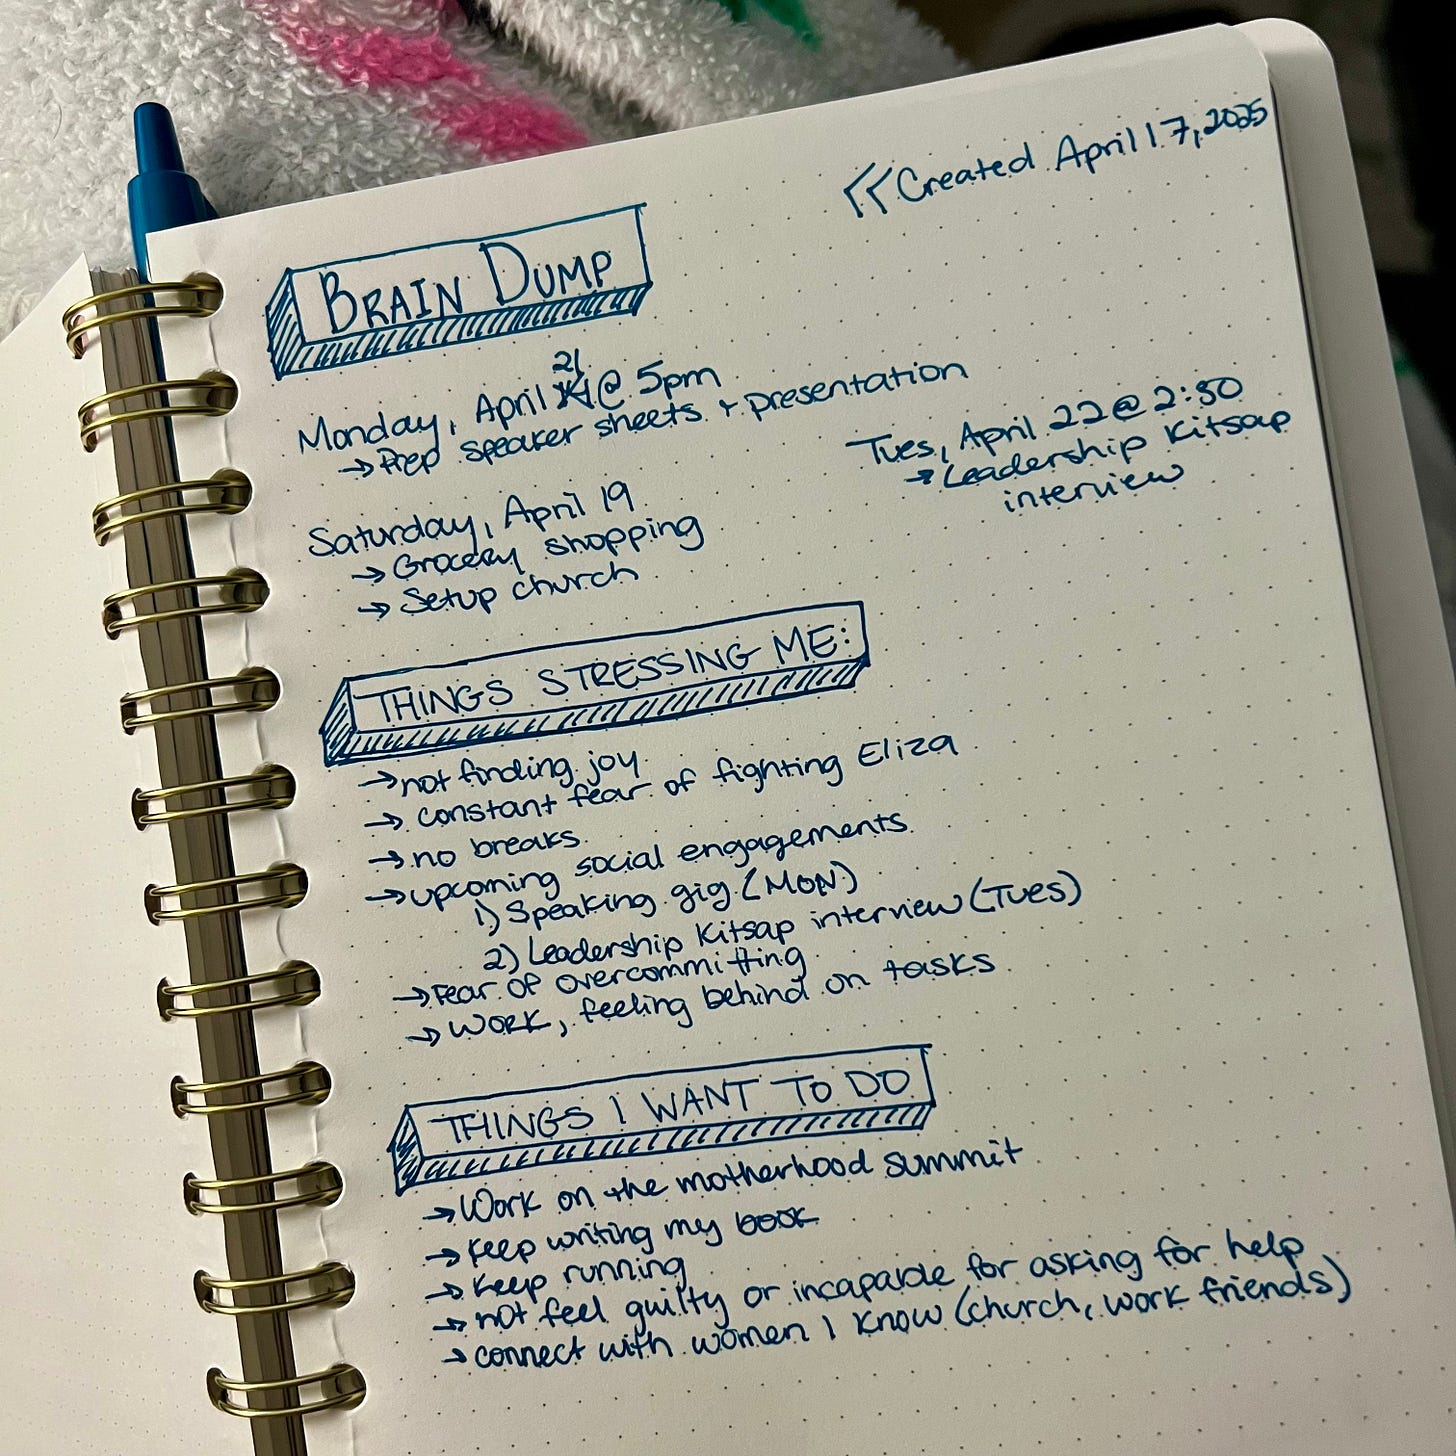 Created April 17, 2025
BRAIN DUMP
Monday, April 21 @ 5pm
→ Prep speaker sheets + presentation
Tues, April 22 @ 2:30
→ Leadership Kitsap
interview
Saturday, April 19
→ Grocery shopping
→ Setup church
THINGS STRESSING ME:
→ not finding joy
→ constant fear of fighting Eliza
→ no breaks
→ upcoming social engagements
1) Speaking gig (MON)
2) Leadership Kitsap interview (Tues)
→ Fear of overcommitting
→ Work, feeling behind on tasks
THINGS I WANT TO DO
→ Work on the motherhood summit
→ Keep writing my book
→ Keep running
→ not feel guilty or incapable for asking for help
→ connect with women I know (church, work friends)